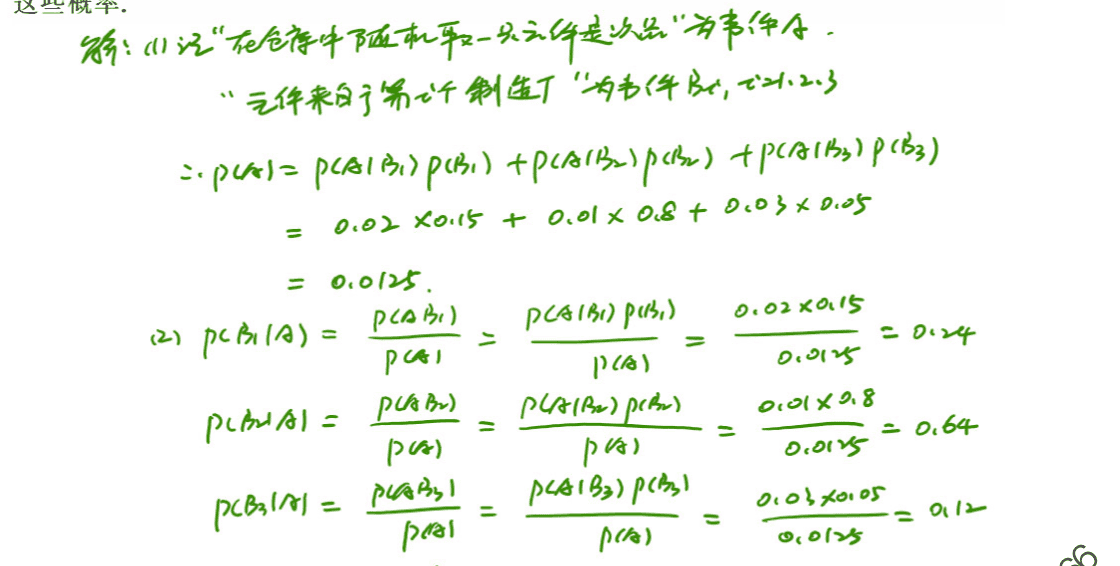 这些概率.
解: (1) 记“在仓库中随机取一只元件是次品”为事件A.
“元件来自于第i个制造厂”为事件Bi, i=1.2.3
∴ P(A) = P(A|B₁)P(B₁) + P(A|B₂)P(B₂) + P(A|B₃)P(B₃)
= 0.02×0.15 + 0.01×0.8 + 0.03×0.05
= 0.0125.
(2) P(B₁|A) = P(AB₁)/P(A) = P(A|B₁)P(B₁)/P(A) = 0.02×0.15/0.0125 = 0.24
P(B₂|A) = P(AB₂)/P(A) = P(A|B₂)P(B₂)/P(A) = 0.01×0.8/0.0125 = 0.64
P(B₃|A) = P(AB₃)/P(A) = P(A|B₃)P(B₃)/P(A) = 0.03×0.05/0.0125 = 0.12